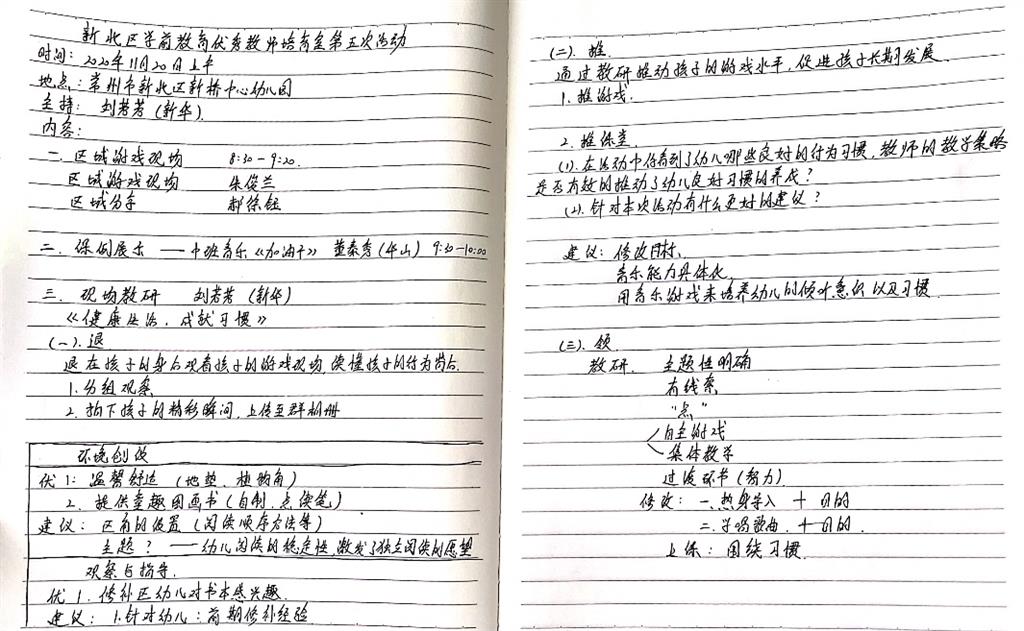 新北区学前教育优秀教师培育室第五次活动
时间：2020年11月20日上午
地点：常州市新北区新桥中心幼儿园
主持：刘芳芳（新华）
内容：
一、区域游戏现场 8:30-9:20.
区域游戏现场 朱俊兰
区域分享 徐钰
二、课例展示——中班音乐《加油干》 董秦秀（华山） 9:30-10:00
三、现场教研 刘芳芳（新华）
《健康生活，成就习惯》
（一）.退
退在孩子的身后观看孩子的游戏现场，读懂孩子的行为背后.
1.分组观察
2.拍下孩子的精彩瞬间，上传至群相册
环境创设
优1：温馨舒适（地垫、植物角）
2.提供童趣图画书（自制、点读笔）
建议：区角的设置（阅读顺序方法等）
主题？——幼儿阅读的稳定性，激发了独立阅读的愿望
观察与指导.
优1.修补区幼儿对书本感兴趣.
建议：1.针对幼儿：前期修补经验
（二）.推.
通过教研推动孩子的游戏水平，促进孩子长期发展.
1.推游戏.
2.推课堂
（1）.在活动中你看到了幼儿哪些良好的行为习惯，教师的教学策略
是否有效的推动了幼儿良好习惯的养成？
（2）.针对本次活动有什么更好的建议？
建议：修改目标、
音乐能力具体化
用音乐游戏来培养幼儿的倾听意识以及习惯.
（三）.领
教研. 主题性明确
有线索
“点”
自主游戏
集体教学
过渡环节（努力）
修改：一.热身导入 + 目的
二.学唱歌曲. + 目的.
上课：围绕习惯.